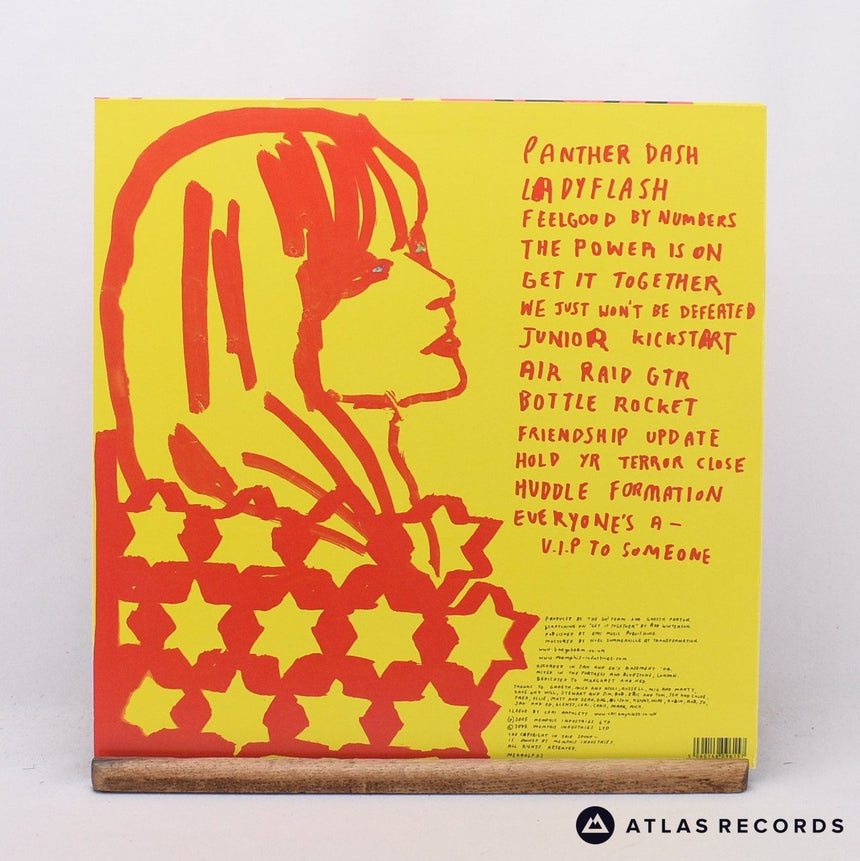 PANTHER DASH
LADYFLASH
FEELGOOD BY NUMBERS
THE POWER IS ON
GET IT TOGETHER
WE JUST WON'T BE DEFEATED
JUNIOR KICKSTART
AIR RAID GTR
BOTTLE ROCKET
FRIENDSHIP UPDATE
HOLD YR TERROR CLOSE
HUDDLE FORMATION
EVERYONE'S A -
V.I.P TO SOMEONE
PRODUCED BY THE GO! TEAM AND GARETH PARTON.
SCRATCHING ON "GET IT TOGETHER" BY ROB
PUBLISHED BY EMI MUSIC PUBLISHING.
MASTERED BY NOEL SUMMERVILLE AT TRANSFORMATION.
www.thegoteam.co.uk
www.memphis-industries.com
RECORDED IN IAN AND ED'S BASEMENT '04.
MIXED IN THE FORTRESS AND BLOFSTONE, LONDON.
DEDICATED TO MARGARET AND NED.
THANKS TO GARETH, MIKE AND
SLEEVE BY CERI AMPHLETT
(P) 2005 MEMPHIS INDUSTRIES LTD
© 2005 MEMPHIS INDUSTRIES LTD
THE COPYRIGHT IN THIS SOUND-
IS OWNED BY MEMPHIS INDUSTRIES
ALL RIGHTS RESERVED.
ATLAS RECORDS